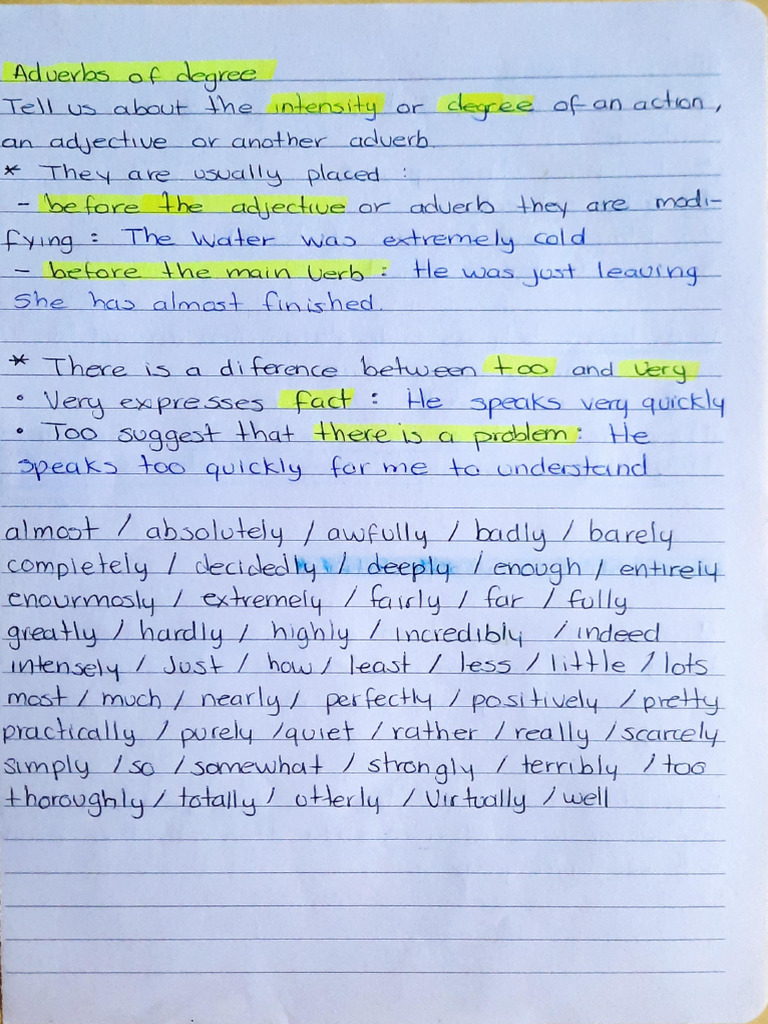 Adverbs of degree
Tell us about the intensity or degree of an action,
an adjective or another adverb.
* They are usually placed :
- before the adjective or adverb they are modi-
fying : The water was extremely cold
- before the main verb : He was just leaving
She has almost finished.
* There is a diference between too and very
• Very expresses fact : He speaks very quickly
• Too suggest that there is a problem : He
speaks too quickly for me to understand
almost / absolutely / awfully / badly / barely
completely / decidedly / deeply / enough / entirely
enourmosly / extremely / fairly / far / fully
greatly / hardly / highly / incredibly / indeed
intensely / Just / how / least / less / little / lots
most / much / nearly / perfectly / positively / pretty
practically / purely / quiet / rather / really / scarcely
simply / so / somewhat / strongly / terribly / too
thoroughly / totally / utterly / virtually / well